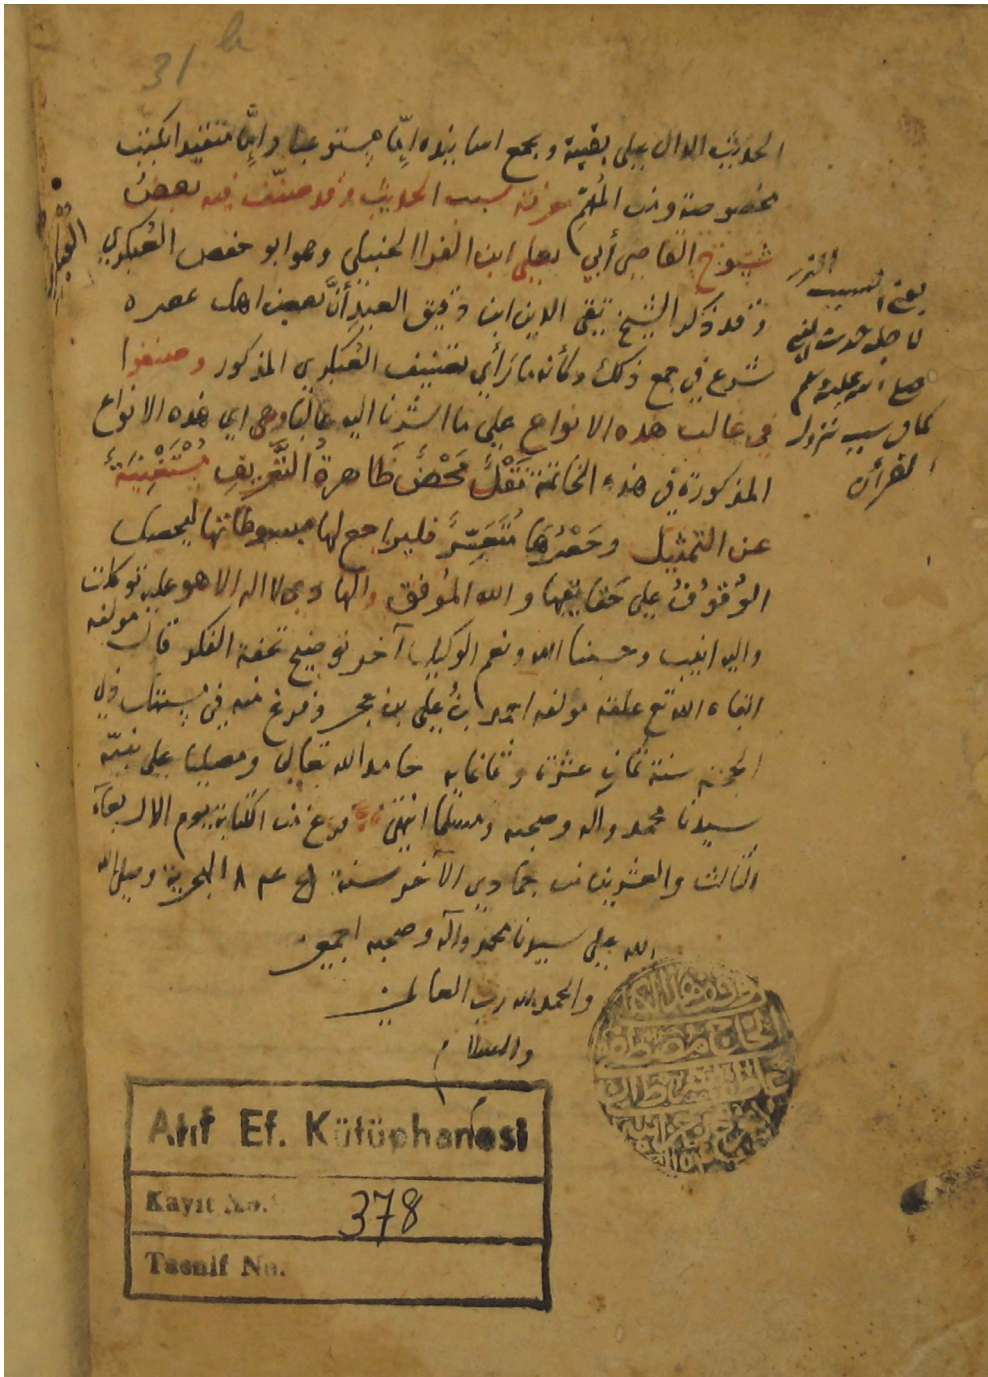 31 b
الحديث الدال على بقيته ويجمع اسانيده إمّا مستوعبا وإمّا متقيدا بكتب
مخصوصة ومن المُهِمِّ معرفة سبب الحديث وقد صنّف فيه بعضُ
شيوخ القاضي أبي يعلى ابن الفرا الحنبلي وهو ابو حفص العُكبري
وقد ذكر الشيخ تقي الدين ابن دقيق العيد أنَّ بعض اهل عصره
شرع في جمع ذلك وكأنه ما رَأي تصنيف العُكبري المذكور وصنفوا
في غالب هذه الانواع علي ما اشرنا اليه غالبا وهي اي هذه الانواع
المذكورة في هذه الخاتمة نَقْلٌ مَحْضٌ ظاهرةُ التَّعْرِيفِ مُسْتَغْنِيَةٌ
عن التمثيل وحَصْرُهَا مُتَعَسِّرٌ فليراجع لها مبسوطاتها ليحصل
الوُقُوْفُ على حَقايقها والله المُوفق والهادي لا اله الا هو عليه توكلت
واليه انيب وحسبنا الله ونعم الوكيل آخر توضيح نخبة الفكر قال مولفه
ابقاه الله تع علقه مولفه احمد بن علي بن حجر وفرغ منه في مستهل ذي
الحجة سنة ثمان عشرة وثمانمايه حامدا لله تعالى ومصليا على نبيّه
سيدنا محمد وآله وصحبه ومسلما انتهى فرغ من الكتابة يوم الاربعآء
الثالث والعشرين من جمادي الآخر سنة الهجرية وصلى الله
الله علي سيدنا محمد وآله وصحبه اجمعين
والحمد لله رب العالمين
والسلام
يعني السبب الذي
لاجله حدث النبي
صلى الله عليه وسلم
كما في سبب نزول
القرآن
Atıf Ef. Kütüphanesi
Kayıt No. 378
Tasnif No.